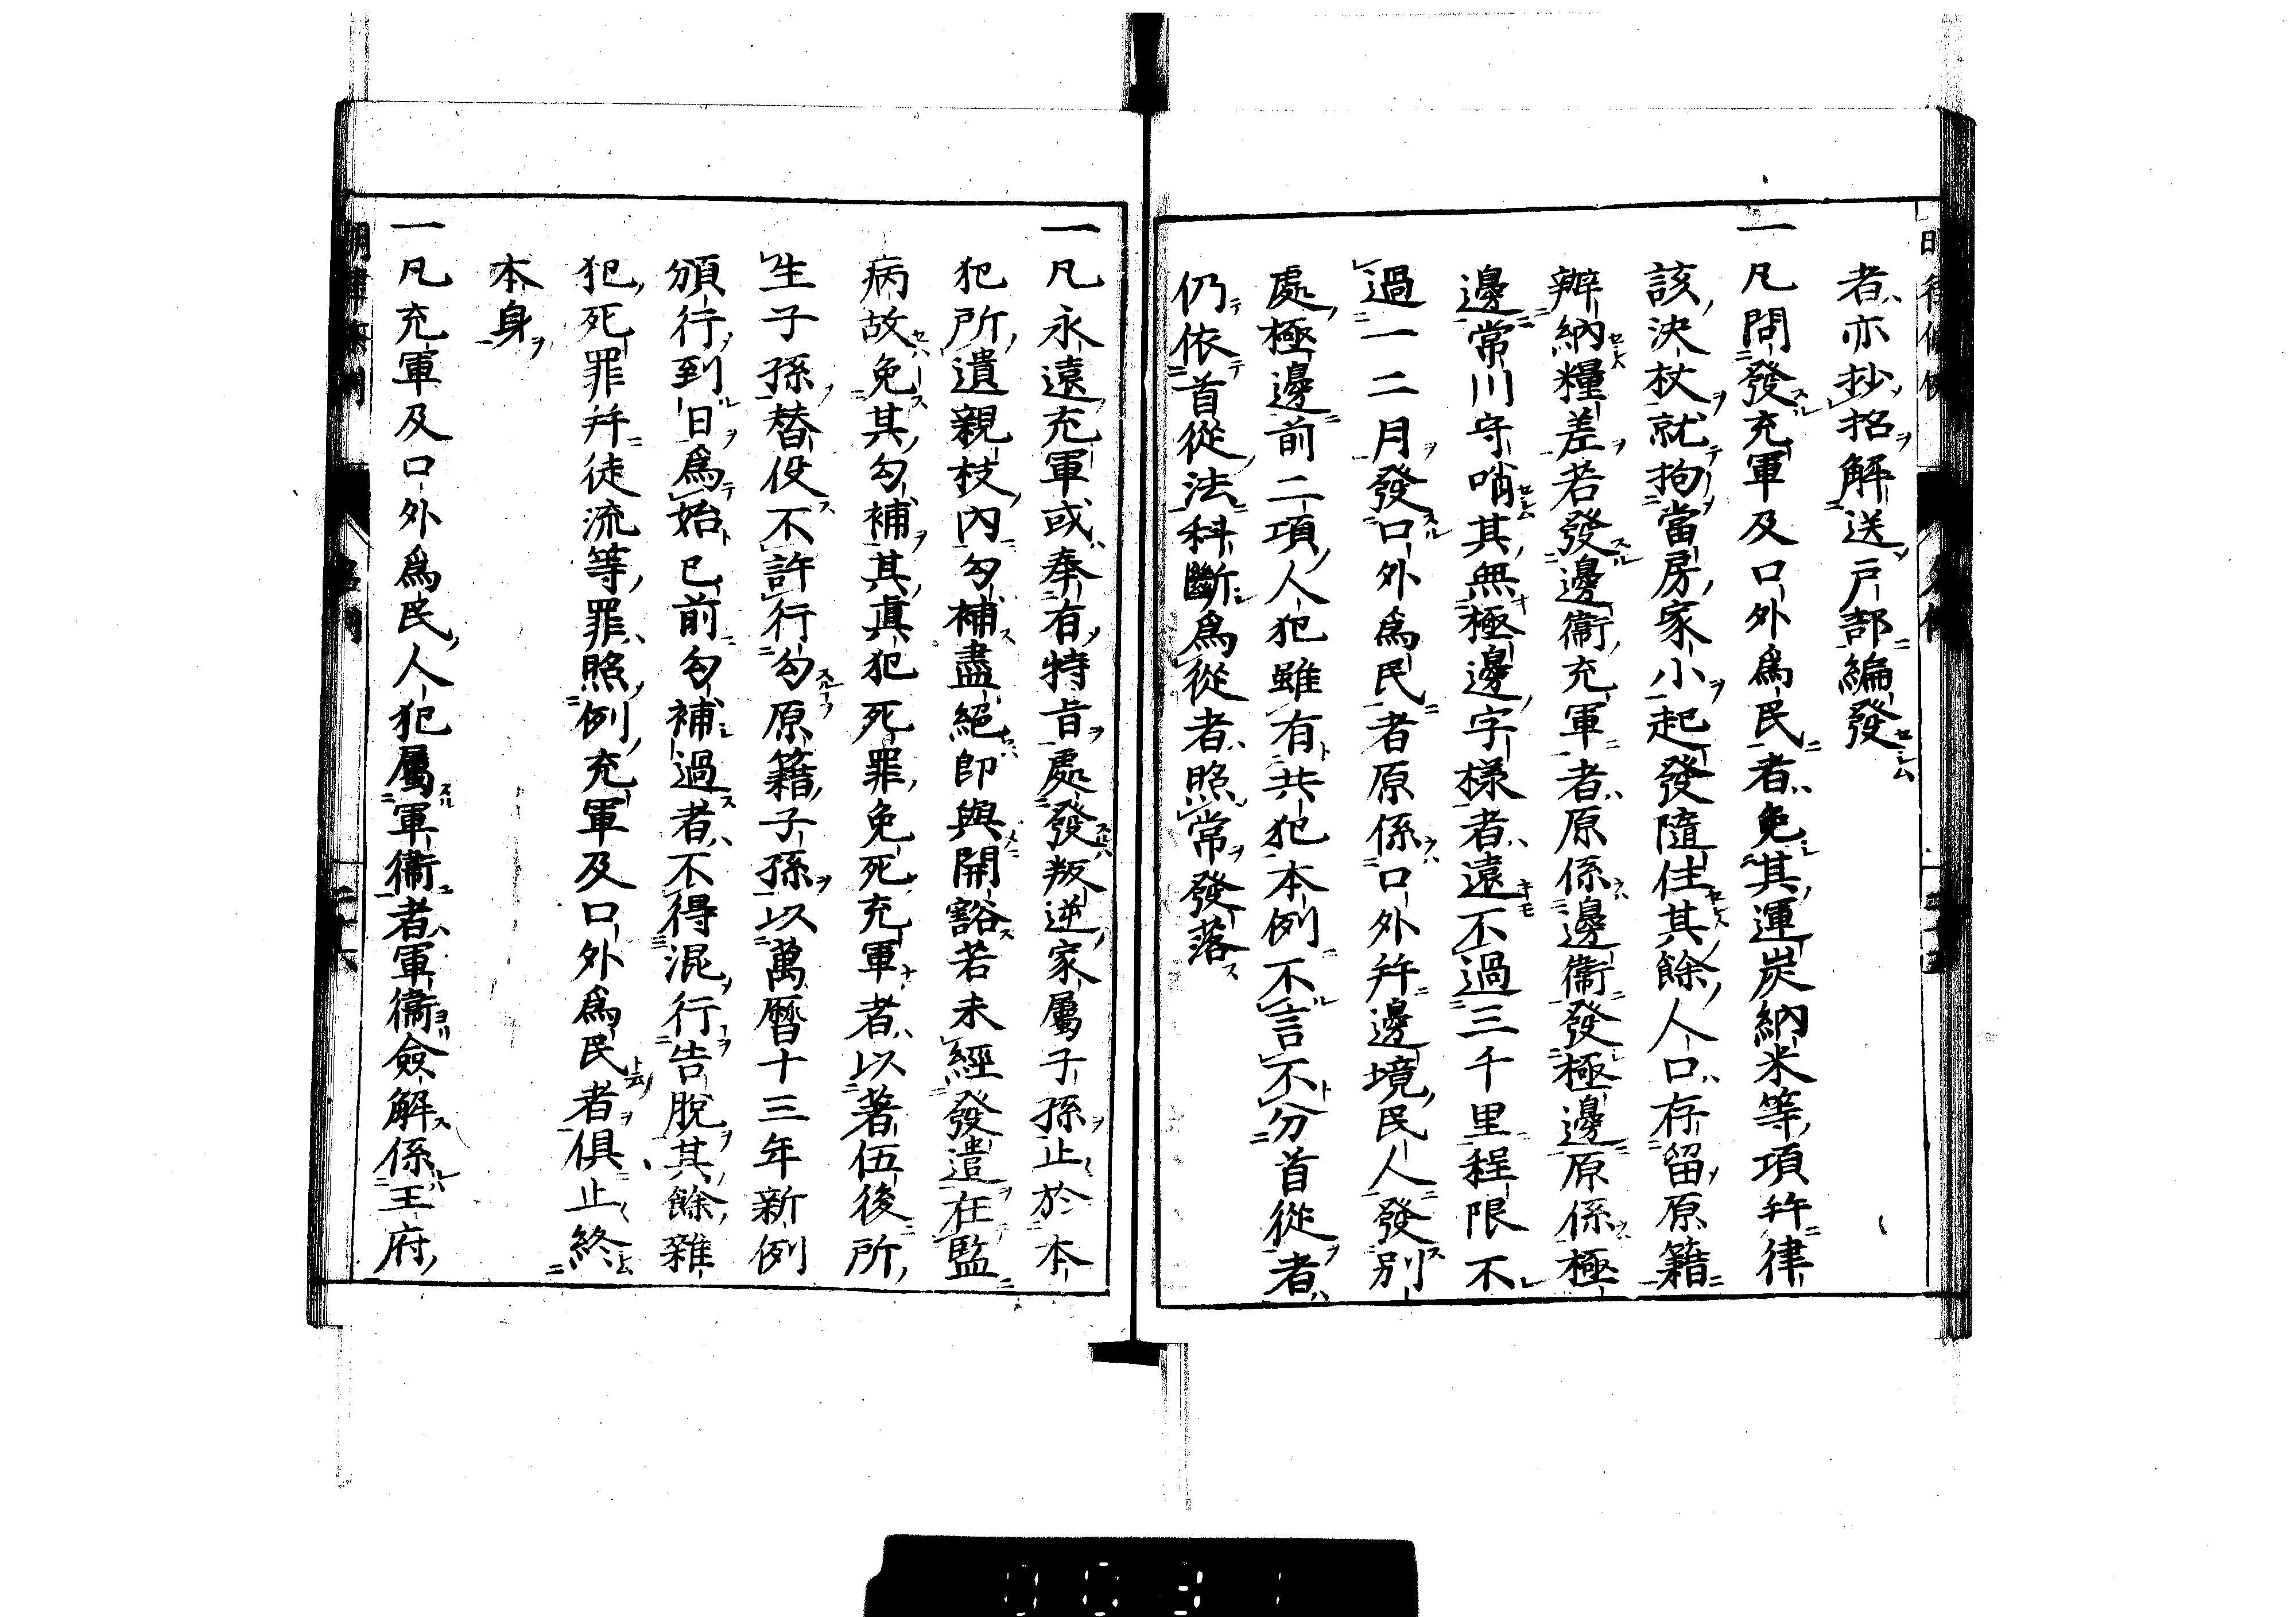 者亦抄招解送戸部編發
一凡問發充軍及口外爲民者免其運炭納米等項幷律
該決杖就拘當房家小起發隨住其餘人口存留原籍
辨納糧差若發邊衞充軍者原係邊衞發極邊原係極
邊常川守哨其無極邊字樣者遠不過三千里程限不
過一二月發口外爲民者原係口外幷邊境民人發別
處極邊前二項人犯雖有共犯本例不言不分首從者
仍依首從法科斷爲從者照常發落
一凡永遠充軍或奉有特旨處發叛逆家屬子孫止於本
犯所遺親枝內勾補盡絕即與開豁若未經發遣在監
病故免其勾補其眞犯死罪免死充軍者以著伍後所
生子孫替役不許行勾原籍子孫以萬曆十三年新例
頒行到日爲始已前勾補過者不得混行告脫其餘雜
犯死罪幷徒流等罪照例充軍及口外爲民者俱止終
本身
一凡充軍及口外爲民人犯屬軍衞者軍衞僉解係王府